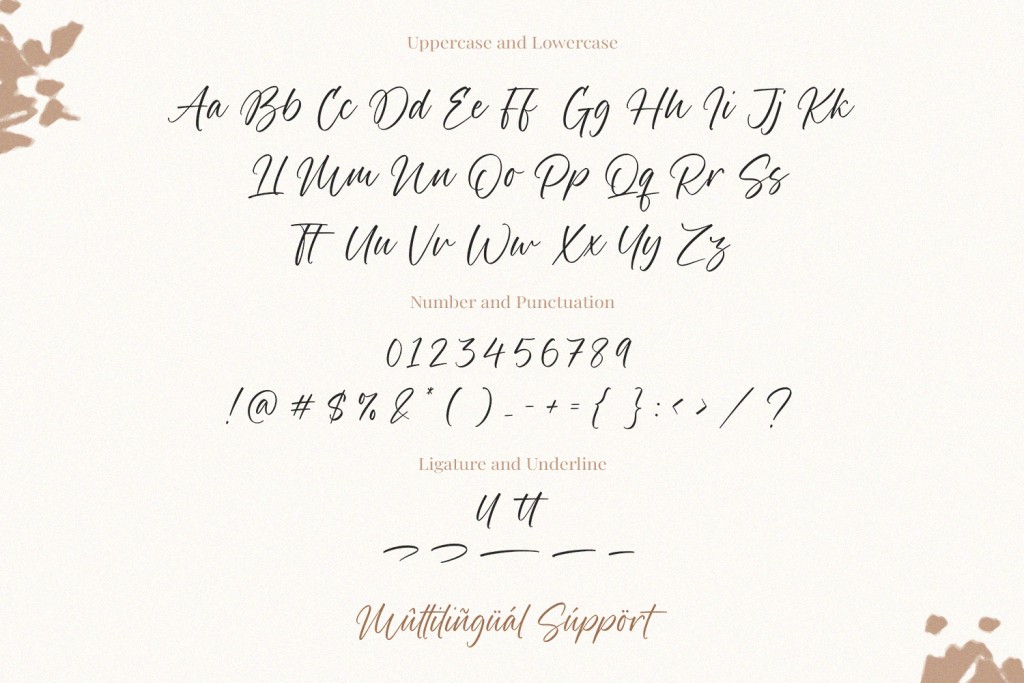 Uppercase and Lowercase
Aa Bb Cc Dd Ee Ff Gg Hh Ii Jj Kk
Ll Mm Nn Oo Pp Qq Rr Ss
Tt Uu Vv Ww Xx Yy Zz
Number and Punctuation
0 1 2 3 4 5 6 7 8 9
! @ # $ % & * ( ) _ - + = { } : < > / ?
Ligature and Underline
ll tt
Mûltiliñgüál Súppört